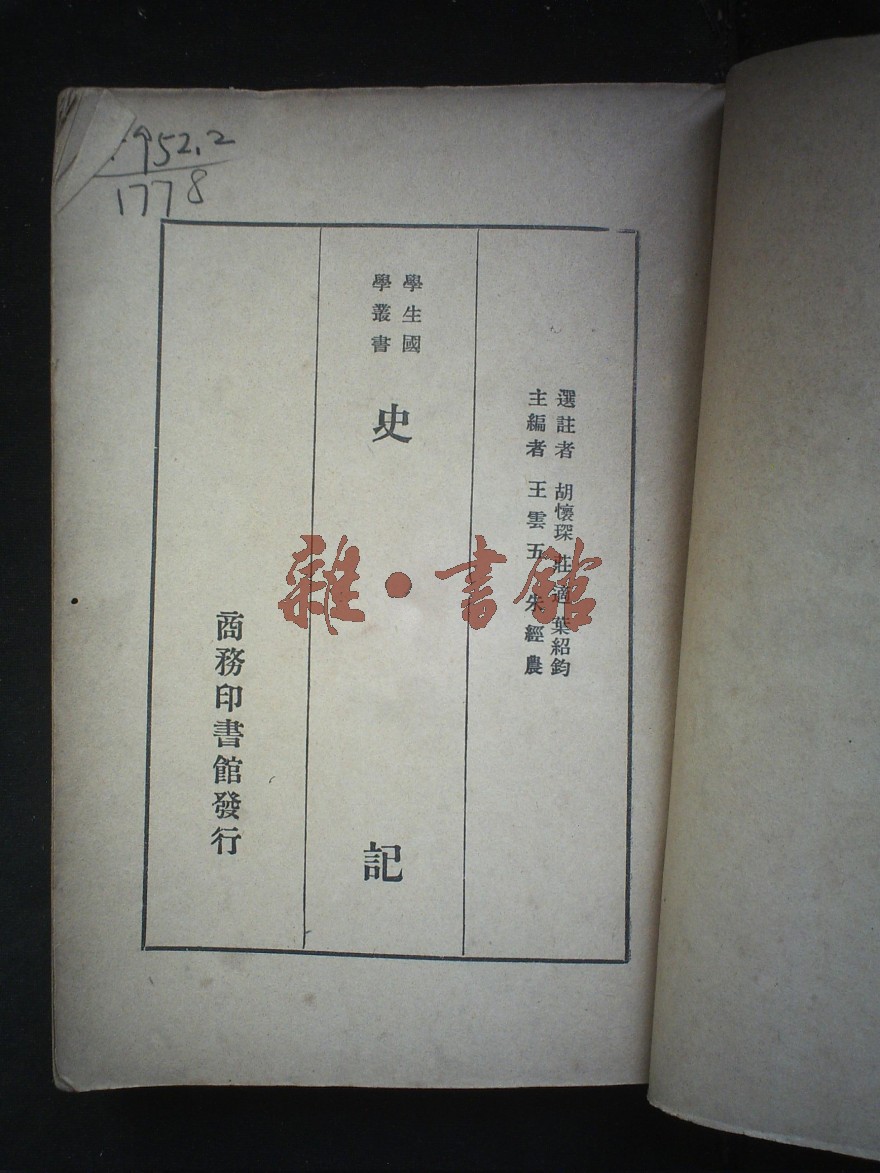 952.2
1778
選註者 胡懷琛 莊適 葉紹鈞
主編者 王雲五 朱經農
學生國
學叢書
史記
商務印書館發行
雜·書館